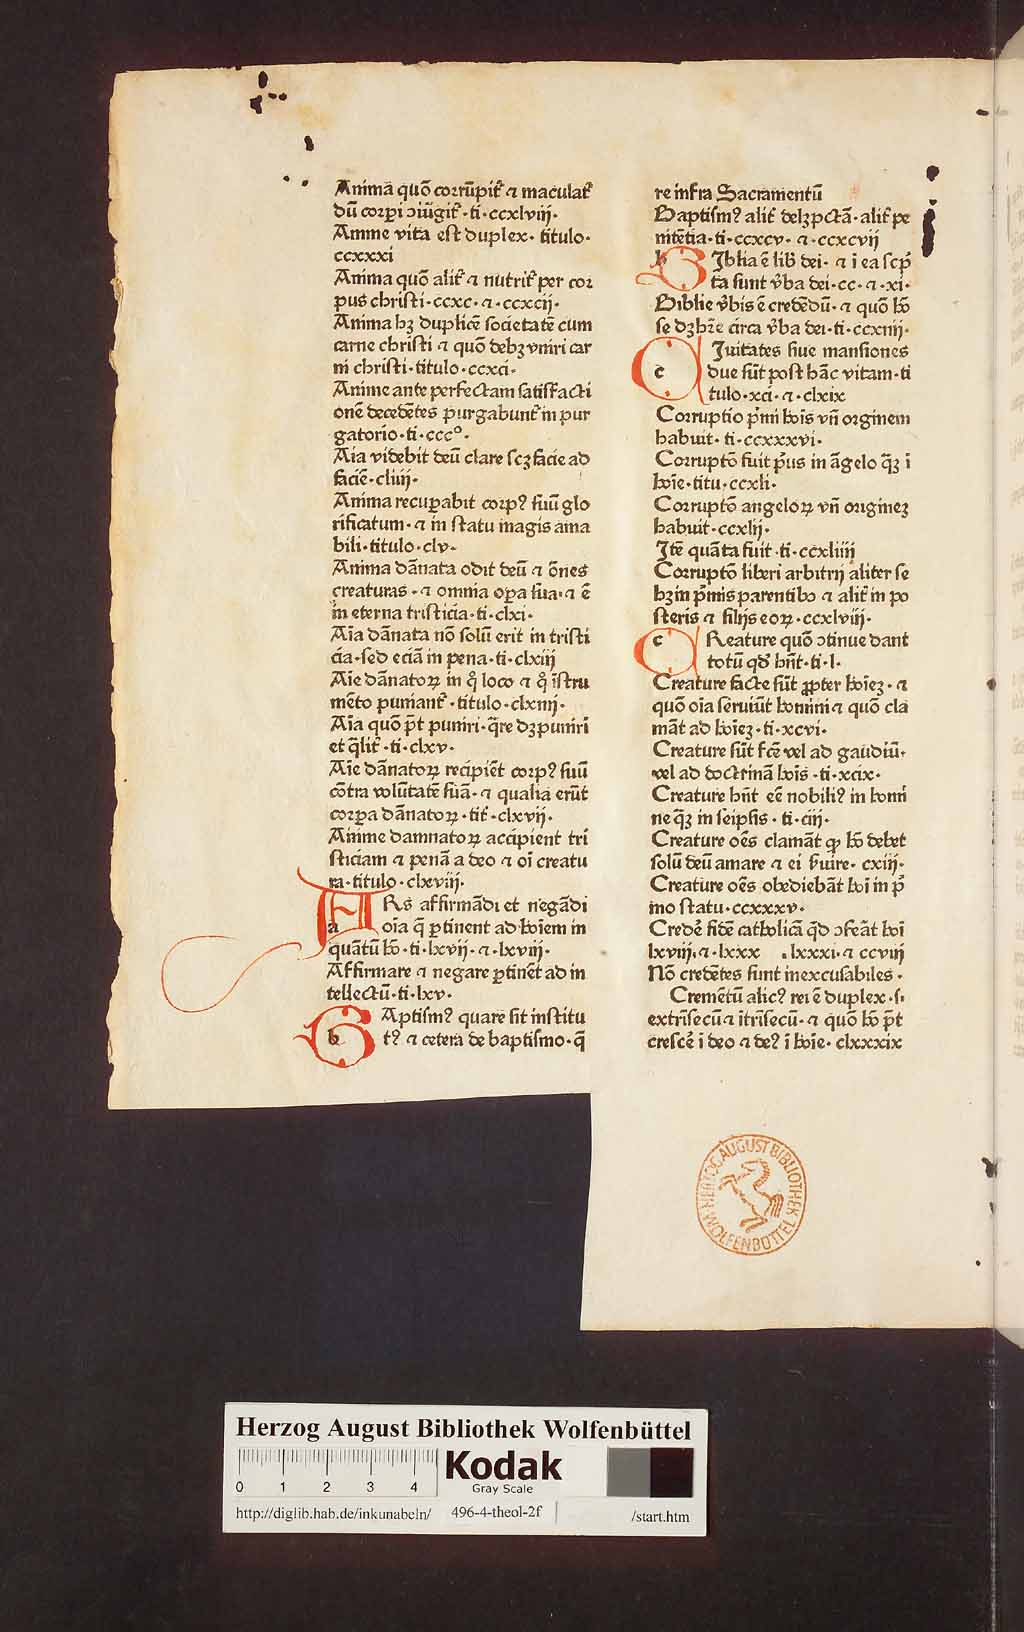 Animā quō corrūpit᷑ ⁊ maculat᷑
dū corpꝑi ɔiūgit᷑·ti·ccxlviij·
Amme vita est duplex· titulo·
ccxxxi
Anima quō alit᷑ ⁊ nutrit᷑ per cor
pus christi·ccxc·⁊·ccxcij·
Anima hꝫ duplicē societatē cum
carne christi ⁊ quō debꝫ vniri car
ni christi·titulo·ccxci·
Anime ante perfectam satisfacti
onē decedētes purgabunt᷑ in pur
gatorio·ti·cccº·
Aīa videbit deū clare scꝫ facie ad
faciē·cliiij·
Anima recuꝑabit corpꝰ suū glo
rificatum·⁊ in statu magis ama
bili·titulo·clv·
Anima dānata odit deū ⁊ ōnes
creaturas·⁊ omnia oꝑa sua·⁊ ē
in eterna tristicia·ti·clxi·
Aīa dānata nō solū erit in tristi
cia·sed eciā in pena·ti·clxiij
Aīe dānatoꝝ in q̊ loco ⁊ q̊ īstru
mēto puniant᷑·titulo·clxiiij·
Aīa quō pōt puniri·q̄re dꝫ puniri
et q̄lit᷑·ti·clxv·
Aīe dānatoꝝ recipiēt corpꝰ suū
cōtra volūtatē suā·⁊ qualia erūt
corꝑa dānatoꝝ·tit᷑·clxvij·
Anime damnatoꝝ accipient tri
sticiam ⁊ penā a deo ⁊ oī creatu
ra·titulo·clxviij·
ARs affirmādi et negādi
a oīa q̄ ꝑtinent ad hoīem in
quātū hō·ti·lxvij·⁊·lxviij·
Affirmare ⁊ negare ꝑtinēt ad in
tellectū·ti·lxv·
BAptismꝰ quare sit institu
b tꝰ ⁊ cetera de baptismo·q̄
re infra Sacramentū
Baptismꝰ alit᷑ delꝫ pctā·alit᷑ pe
nitētia·ti·ccxcv·⁊·ccxcvij
b BIblia ē lib᷑ dei·⁊ i ea scp̄
ta sunt v̄ba dei·cc·⁊·xi·
Biblie v̄bis ē credēdū·⁊ quō hō
se dꝫ hr̄e circa v̄ba dei·ti·ccxiiij·
CIuitates siue mansiones
c due sūt post hāc vitam·ti
tulo·xci·⁊·clxix
Corruptio pͥmi hoīs vn̄ originem
habuit·ti·ccxxxvi·
Corruptō fuit pͥus in āgelo q̄ꝫ i
hoīe·titu·ccxli·
Corruptō angeloꝝ vn̄ origineꝫ
habuit·ccxlij·
Itē quāta fuit·ti·ccxliiij
Corruptō liberi arbitrij aliter se
hꝫ in pͥmis parentibꝰ ⁊ alit᷑ in po
steris ⁊ filijs eoꝝ·ccxlviij·
c CReature quō ɔtinue dant
totū qd᷑ hn̄t·ti·l·
Creature facte sūt ꝓpter hoīeꝫ·⁊
quō oīa seruiūt homini ⁊ quō cla
māt ad hoīeꝫ·ti·xcvi·
Creature sūt fcē vel ad gaudiū·
vel ad doctrinā hoīs·ti·xcix·
Creature hn̄t eē nobiliꝰ in homi
ne q̄ꝫ in seipsis·ti·ciij·
Creature oēs clamāt ꝙ hō debet
solū deū amare ⁊ ei s̄uire·cxiij·
Creature oēs obediebāt hoī in pͥ
mo statu·ccxxxv·
Credē fidē catholicā qͥd ɔfeāt hoī
lxviij·⁊·lxxx ·lxxxi·⁊ ccviij
Nō credētes sunt inexcusabiles·
Cremētū alicꝰ rei ē duplex·s·
extrīsecū ⁊ itrīsecū·⁊ quō hō pōt
crescē i deo ⁊ deꝰ i hoīe·clxxxix
HERZOG AUGUST BIBLIOTHEK
WOLFENBÜTTEL
Herzog August Bibliothek Wolfenbüttel
0 1 2 3 4
Kodak
Gray Scale
http://diglib.hab.de/inkunabeln/ 496-4-theol-2f /start.htm